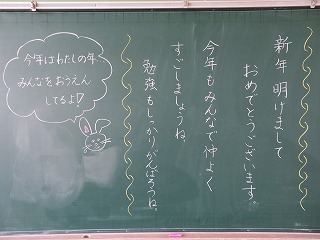 新年 明けまして
おめでとうございます。
今年もみんなで仲よく
すごしましょうね。
勉強もしっかりがんばろうね。
今年はわたしの年
みんなをおうえん
してるよ♡